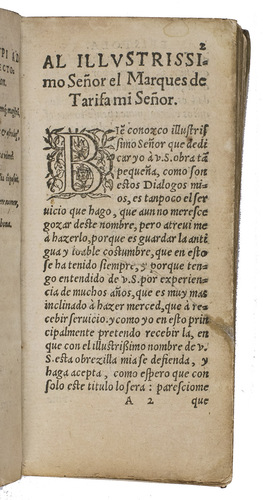 2
AL ILLVSTRISSI-
mo Señor el Marques de
Tarifa mi Señor.
BIẽ conozco illustris
simo Señor que dedi
car yo à v.S. obra tã
pequeña, como son
estos Dialogos mi-
os, es tan poco el ser
uicio que hago, que aun no meresce
gozar deste nombre, pero atreui me
à hazerlo, porque es guardar la anti
gua y loable costumbre, que en esto
se ha tenido siempre, y porque ten-
go entendido de v.S. por experien-
cia de muchos años, que es muy mas
inclinado à hazer merced, que à re-
cebir seruicio. y como yo en esto prin
cipalmente pretendo recebir la, en
que con el illustrissimo nombre de v.
S. esta obrezilla mia se defienda, y
haga acepta, como espero que con
solo este titulo lo sera: paresciome
A 2 que